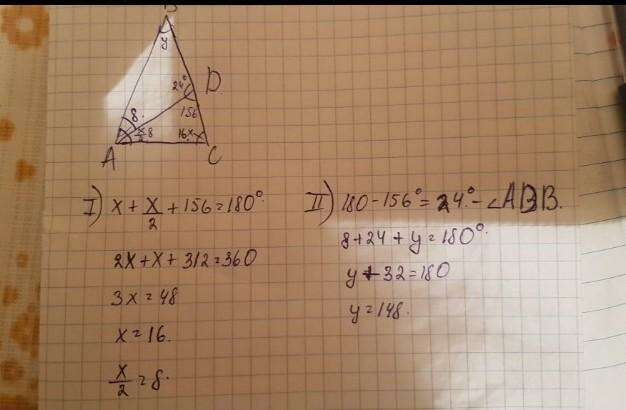 B
y
24° D
8 156
x/2 8 16 x
A C
I) x + x/2 + 156 = 180°
2x + x + 312 = 360
3x = 48
x = 16.
x/2 = 8.
II) 180 - 156° = 24° - ∠ADB.
8 + 24 + y = 180°
y + 32 = 180
y = 148.